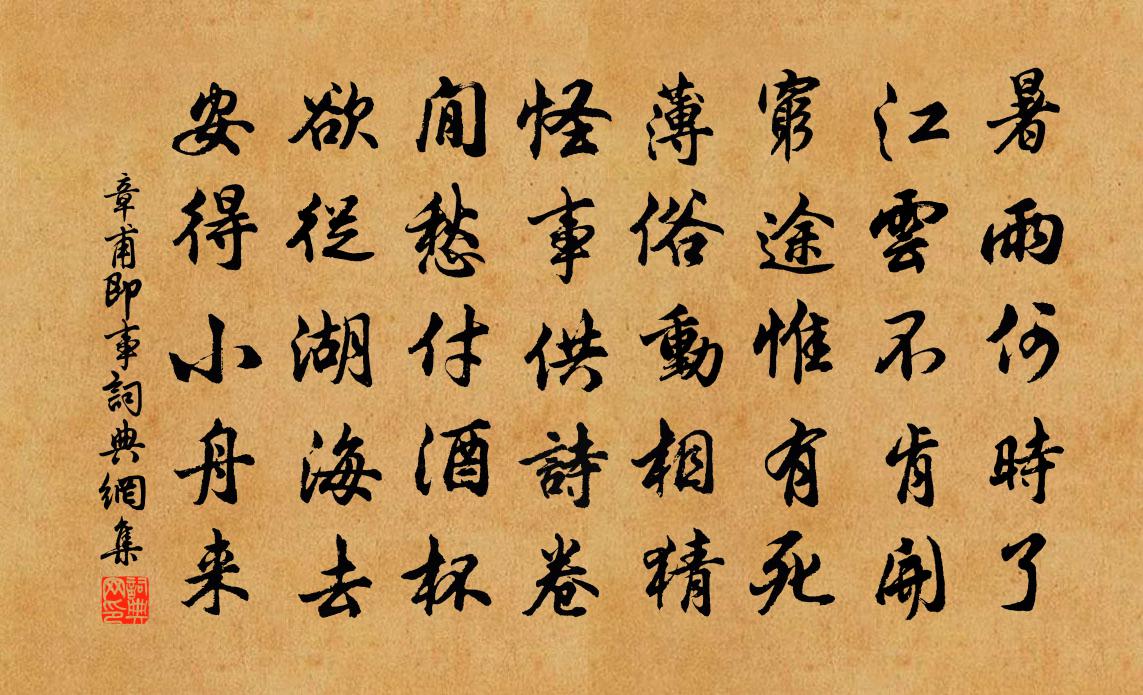 暑雨何時了
江雲不肯開
窮途惟有死
薄俗動相猜
怪事供詩卷
閒愁付酒杯
欲從湖海去
安得小舟来
章甫即事詞典網集
詞典网印